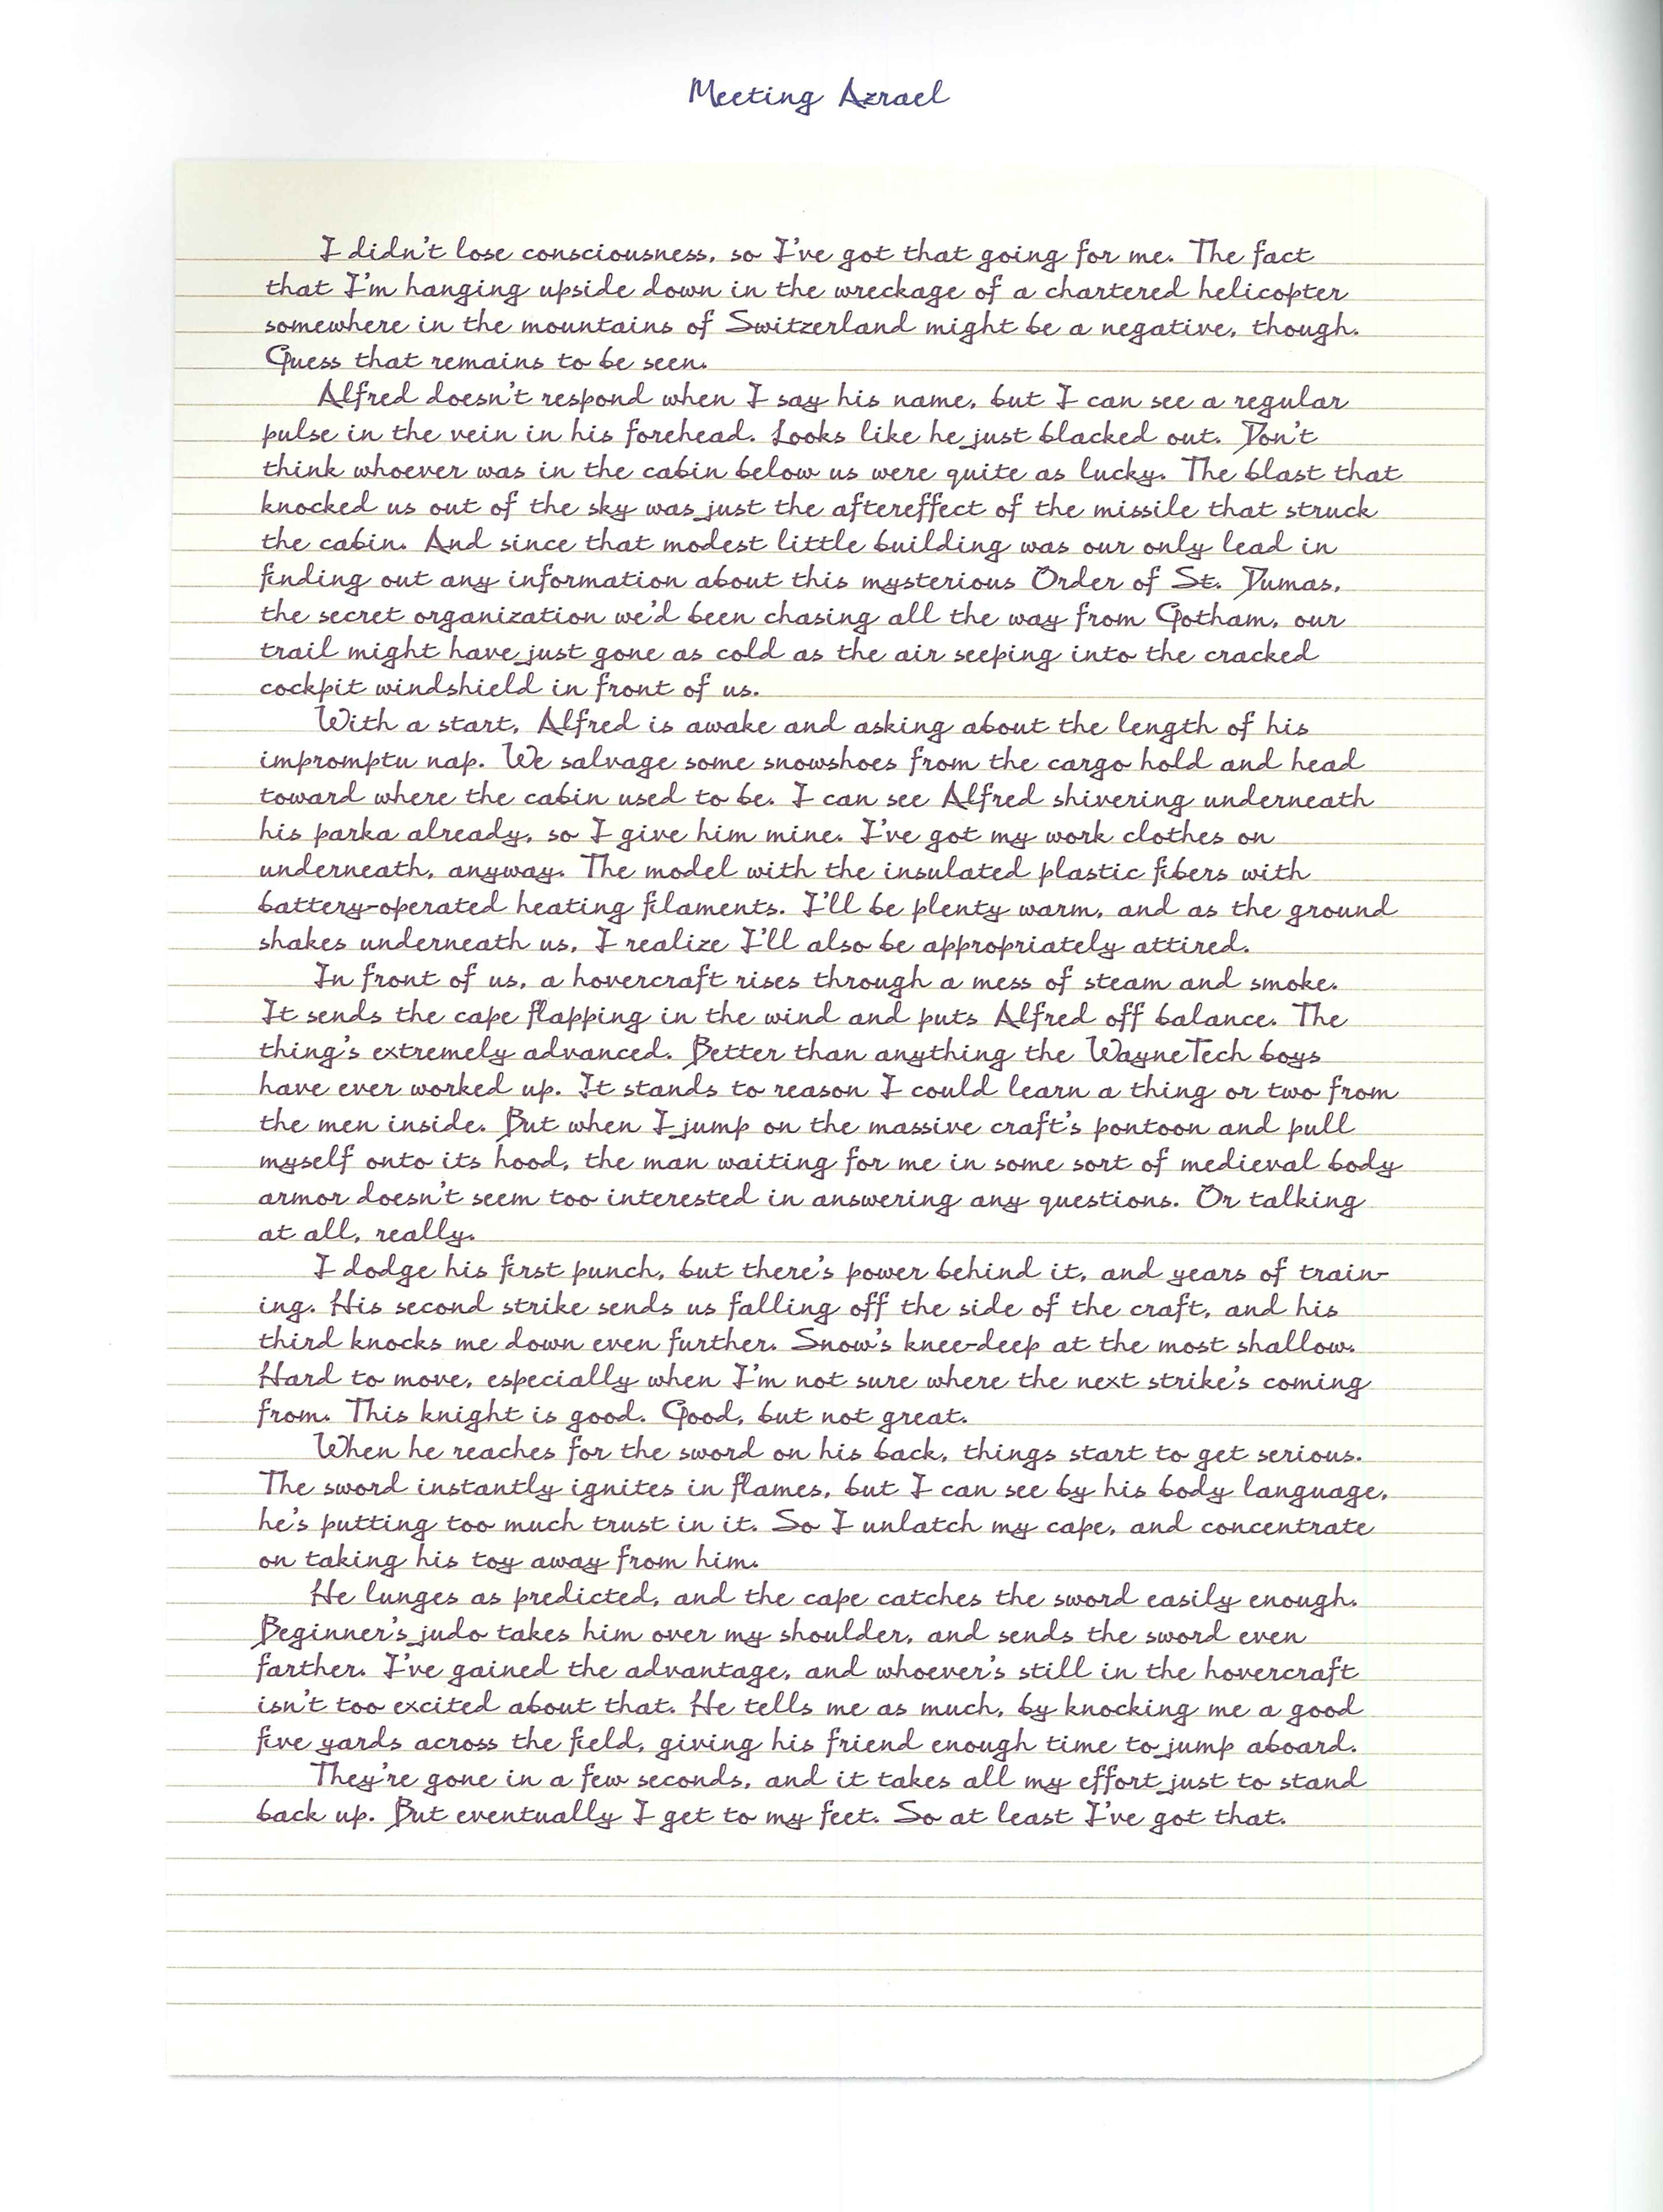 Meeting Azrael
I didn't lose consciousness, so I've got that going for me. The fact
that I'm hanging upside down in the wreckage of a chartered helicopter
somewhere in the mountains of Switzerland might be a negative, though.
Guess that remains to be seen.
Alfred doesn't respond when I say his name, but I can see a regular
pulse in the vein in his forehead. Looks like he just blacked out. Don't
think whoever was in the cabin below us were quite as lucky. The blast that
knocked us out of the sky was just the aftereffect of the missile that struck
the cabin. And since that modest little building was our only lead in
finding out any information about this mysterious Order of St. Dumas,
the secret organization we'd been chasing all the way from Gotham, our
trail might have just gone as cold as the air seeping into the cracked
cockpit windshield in front of us.
With a start, Alfred is awake and asking about the length of his
impromptu nap. We salvage some snowshoes from the cargo hold and head
toward where the cabin used to be. I can see Alfred shivering underneath
his parka already, so I give him mine. I've got my work clothes on
underneath, anyway. The model with the insulated plastic fibers with
battery-operated heating filaments. I'll be plenty warm, and as the ground
shakes underneath us, I realize I'll also be appropriately attired.
In front of us, a hovercraft rises through a mess of steam and smoke.
It sends the cape flapping in the wind and puts Alfred off balance. The
thing's extremely advanced. Better than anything the WayneTech boys
have ever worked up. It stands to reason I could learn a thing or two from
the men inside. But when I jump on the massive craft's pontoon and pull
myself onto its hood, the man waiting for me in some sort of medieval body
armor doesn't seem too interested in answering any questions. Or talking
at all, really.
I dodge his first punch, but there's power behind it, and years of train-
ing. His second strike sends us falling off the side of the craft, and his
third knocks me down even further. Snow's knee-deep at the most shallow.
Hard to move, especially when I'm not sure where the next strike's coming
from. This knight is good. Good, but not great.
When he reaches for the sword on his back, things start to get serious.
The sword instantly ignites in flames, but I can see by his body language,
he's putting too much trust in it. So I unlatch my cape, and concentrate
on taking his toy away from him.
He lunges as predicted, and the cape catches the sword easily enough.
Beginner's judo takes him over my shoulder, and sends the sword even
farther. I've gained the advantage, and whoever's still in the hovercraft
isn't too excited about that. He tells me as much, by knocking me a good
five yards across the field, giving his friend enough time to jump aboard.
They're gone in a few seconds, and it takes all my effort just to stand
back up. But eventually I get to my feet. So at least I've got that.